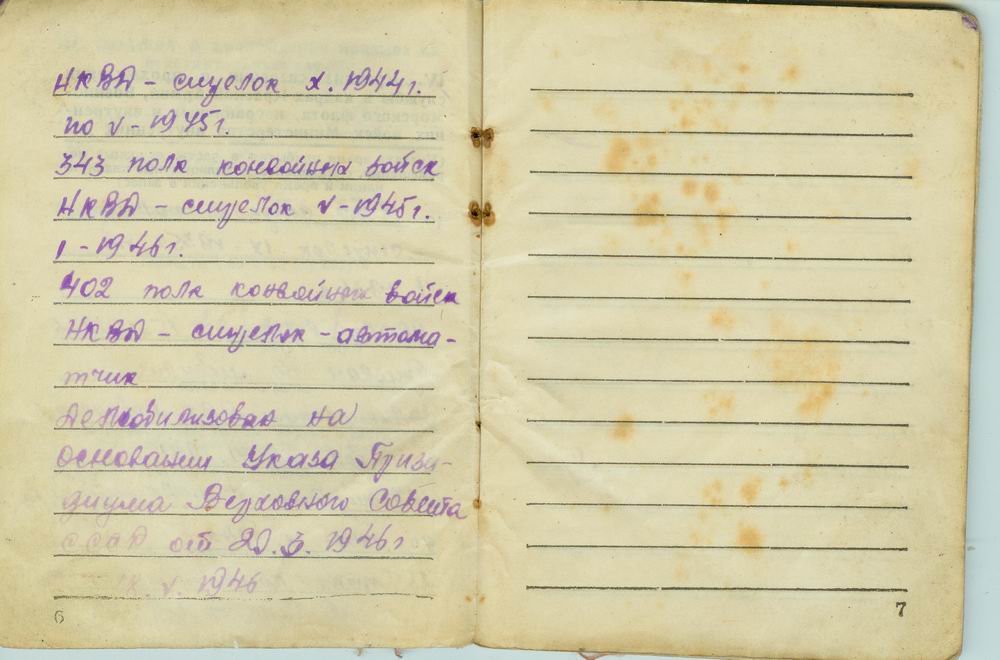 НКВД - стрелок X. 1944г.
по V - 1945г.
343 полк конвойных войск
НКВД - стрелок V - 1945г.
I - 1946г.
402 полк конвойных войск
НКВД - стрелок - автома-
тчик
Демобилизован на
основании Указа Прези-
диума Верховного Совета
СССР от 20. 3. 1946г
V. 1946
6
7